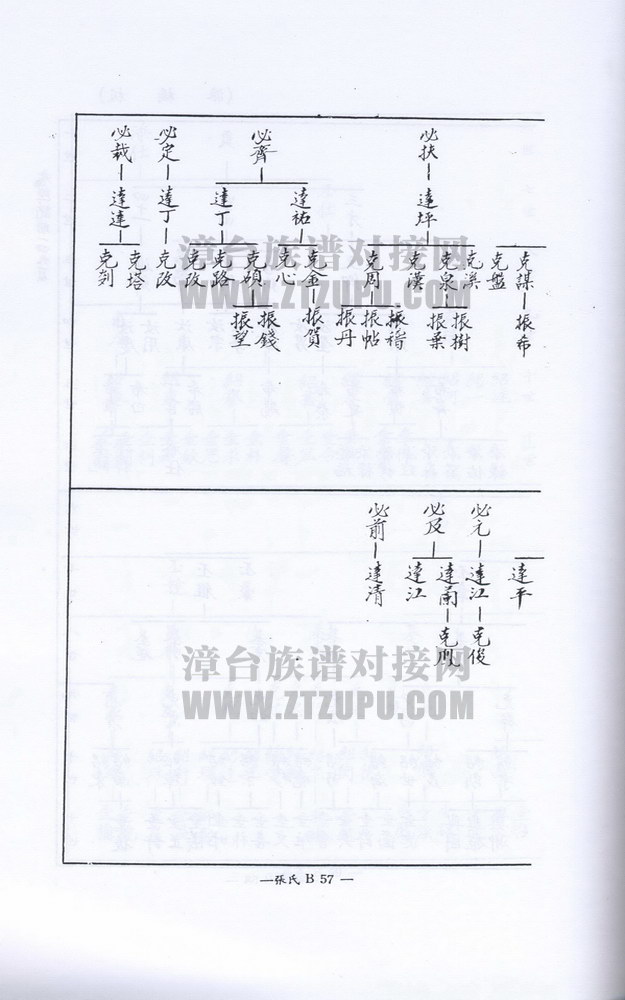 必扶 必齊 必定 必裁
達坪 達祐 達丁 達丁 達連
克謀 克盤 克溪 克泉 克漢 克周 克金 克心 克碩 克路 克改 克改 克塔 克刻
振希 振樹 振葉 振褚 振帖 振丹 振賀 振錢 振望
漳台族谱对接网
WWW.ZTZUPU.COM
必元 必及 必前
達平 達江 達蘭 達江 達清
克俊 克鳳
漳台族谱对接网
WWW.ZTZUPU.COM
—張氏 B 57 —